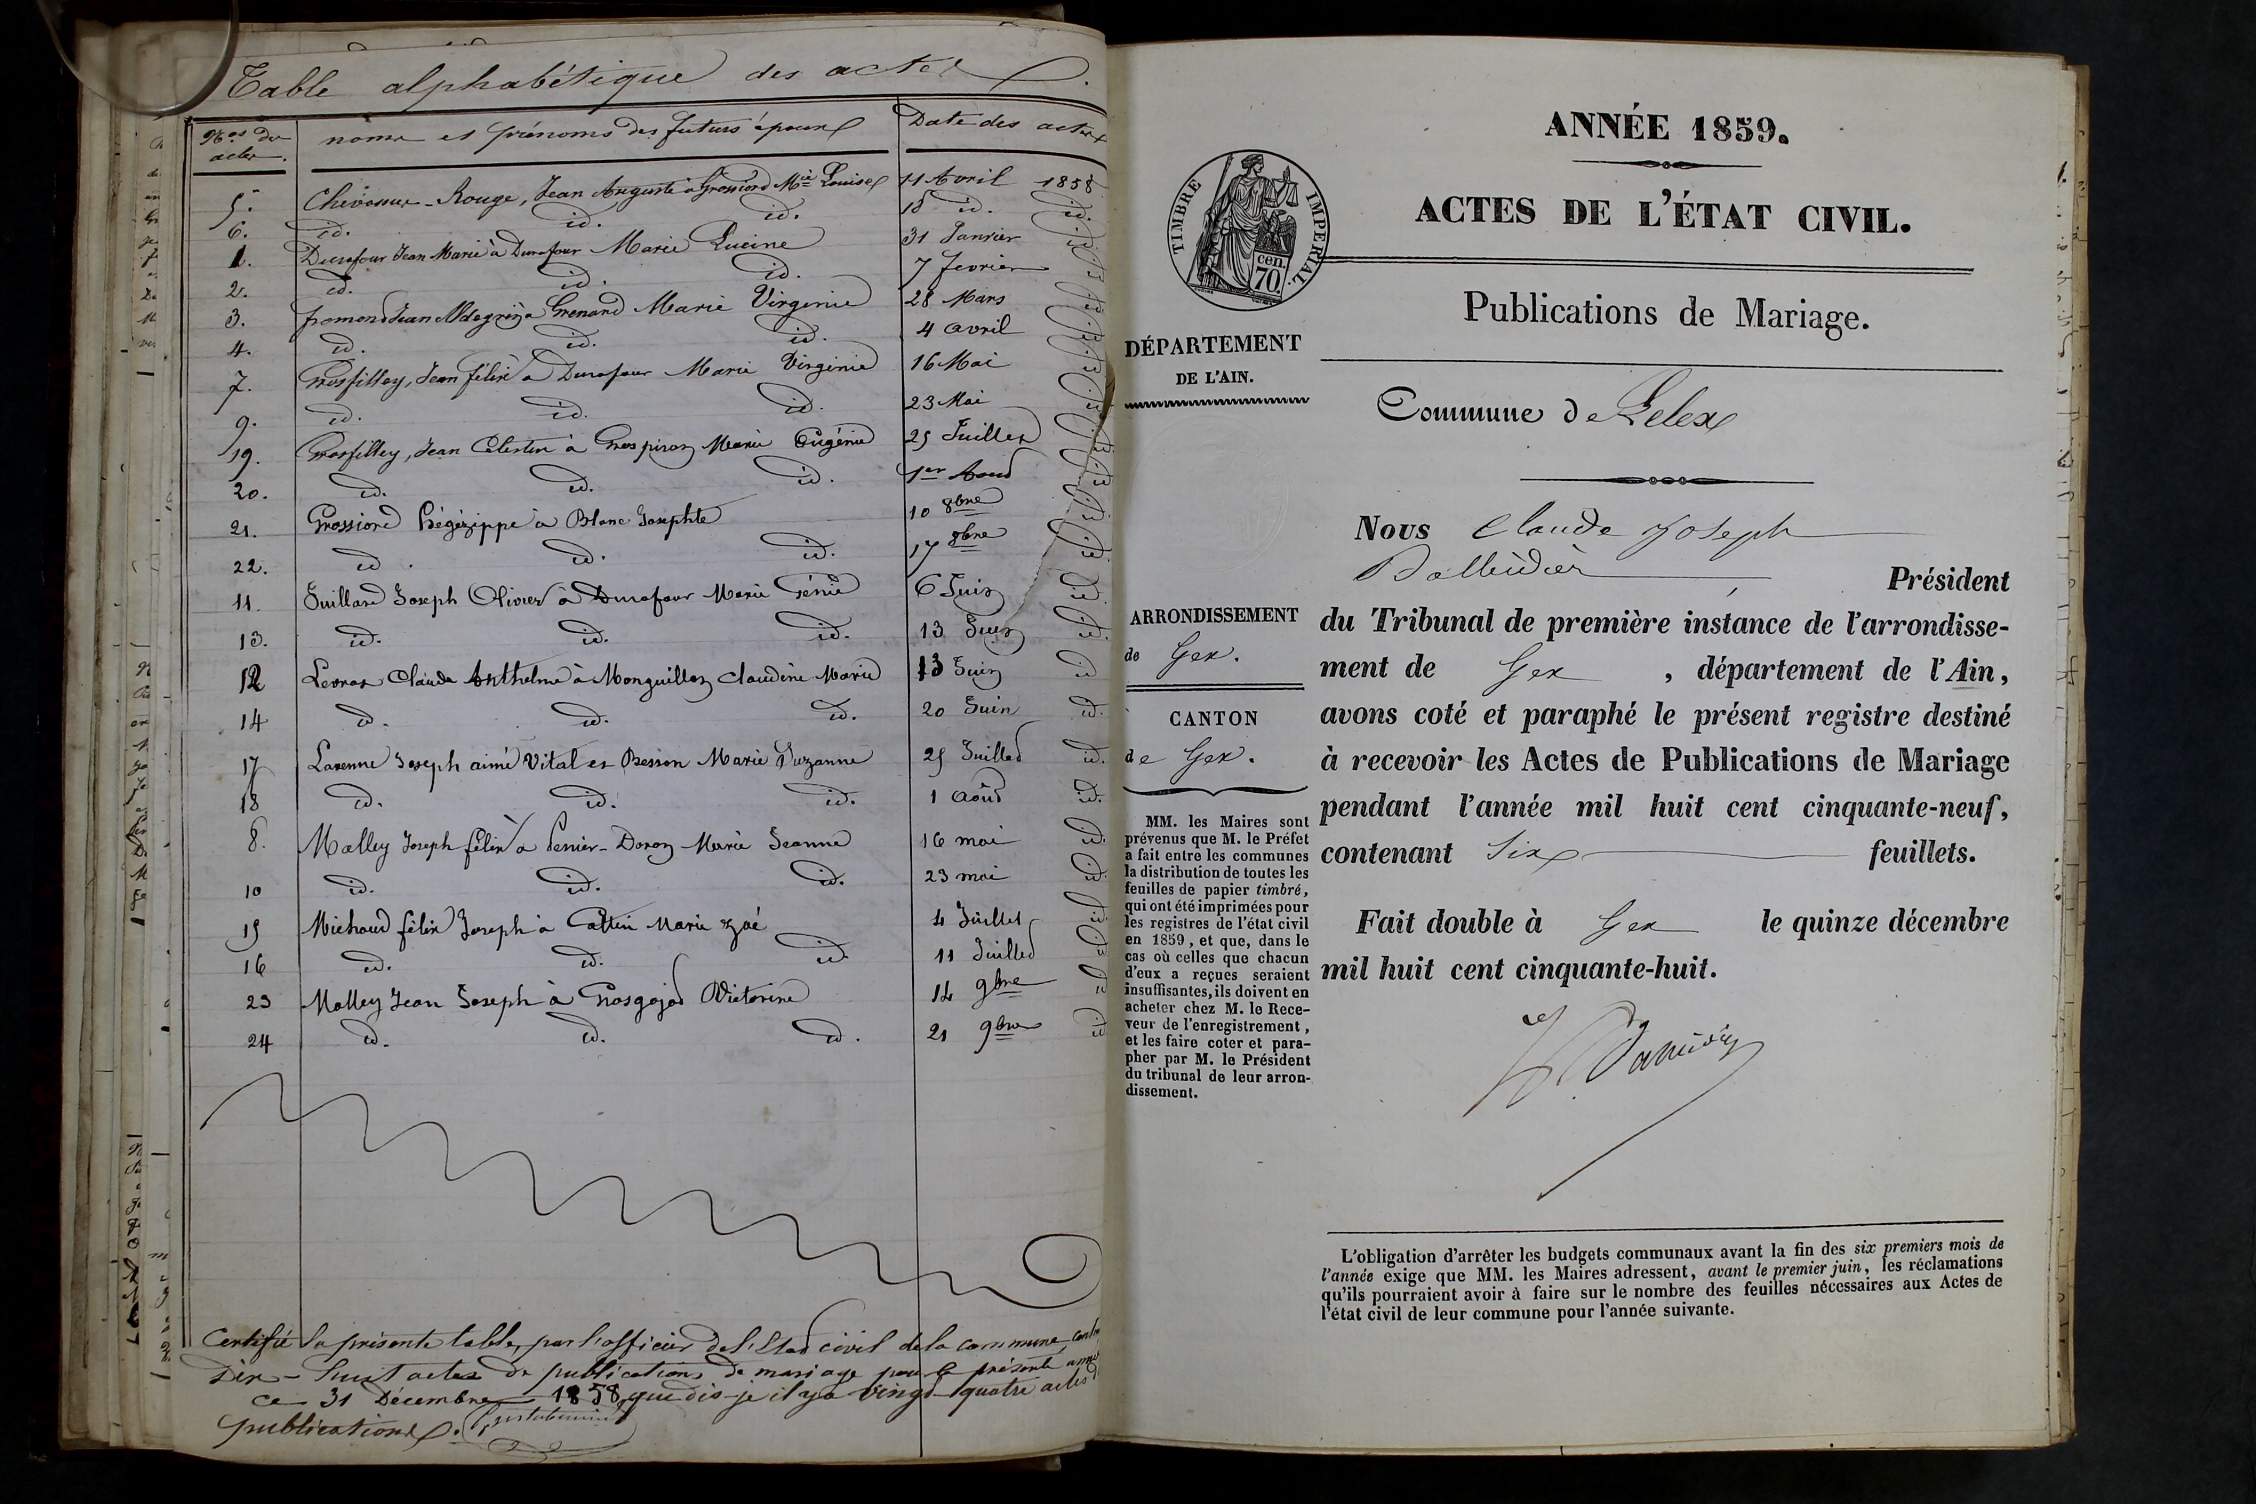 Table alphabétique des actes
Nos des actes. noms et prénoms des futurs époux Date des actes
5. Chevassus-Rouge, Jean Auguste à Grossiord Mie Louise 11 Avril 1858
6. id. id. id. 18 id. id.
1. Durafour Jean Marie à Durafour Marie Lucine 31 Janvier id.
2. id. id. id. 7 fevrier id.
3. fromond Jean à Grenard Marie Virginie 28 Mars id.
4. id. id. id. 4 avril id.
7. Grosfilley, Jean félix à Durafour Marie Virginie 16 Mai id.
9. id. id. id. 23 Mai id.
19. Grosfilley, Jean Célestin à Grospiron Marie Eugénie 25 Juillet id.
20. id. id. id. 1er Aout id.
21. Grossiord hégézippe à Blanc Josephte 10 8bre id.
22. id. id. id. 17 8bre id.
11. Juillard Joseph Olivier à Durafour Marie Génie 6 Juin id.
13. id. id. id. 13 Juin id.
12 Levrat Claude Anthelme à Monguillon Claudine Marie 13 Juin id
14 id. id. id. 20 Juin id.
17 Lavenne Joseph aimé Vital et Besson Marie Suzanne 25 Juillet id.
18 id. id. id. 1 Août id.
8. Malley Joseph félix à Perrier-Doron Marie Jeanne 16 mai id.
10 id. id. id. 23 mai id.
15 Michaud félix Joseph à Cattin Marie Zoé 4 Juillet id.
16 id. id. id 11 Juillet id
23 Malley Jean Joseph à Grosgojat Victorine 14 9bre id
24 id. id. id. 21 9bre id
Certifié la présente table, par l'officier de l'Etat civil de la commune,
Dix-huit actes de publications de mariage pour la présente année
ce 31 Décembre 1858, que dis-je il y a vingt quatre actes
publications.
ANNÉE 1859.
ACTES DE L'ÉTAT CIVIL.
TIMBRE IMPERIAL.
cen. 70.
Publications de Mariage.
DÉPARTEMENT
DE L'AIN.
Commune de Lelex
Nous Claude Joseph
Président
du Tribunal de première instance de l'arrondisse-
ment de Gex, département de l'Ain,
avons coté et paraphé le présent registre destiné
à recevoir les Actes de Publications de Mariage
pendant l'année mil huit cent cinquante-neuf,
contenant Six feuillets.
Fait double à Gex le quinze décembre
mil huit cent cinquante-huit.
ARRONDISSEMENT
de Gex.
CANTON
de Gex.
MM. les Maires sont
prévenus que M. le Préfet
a fait entre les communes
la distribution de toutes les
feuilles de papier timbré,
qui ont été imprimées pour
les registres de l'état civil
en 1859, et que, dans le
cas où celles que chacun
d'eux a reçues seraient
insuffisantes, ils doivent en
acheter chez M. le Rece-
veur de l'enregistrement,
et les faire coter et para-
pher par M. le Président
du tribunal de leur arron-
dissement.
L'obligation d'arrêter les budgets communaux avant la fin des six premiers mois de
l'année exige que MM. les Maires adressent, avant le premier juin, les réclamations
qu'ils pourraient avoir à faire sur le nombre des feuilles nécessaires aux Actes de
l'état civil de leur commune pour l'année suivante.